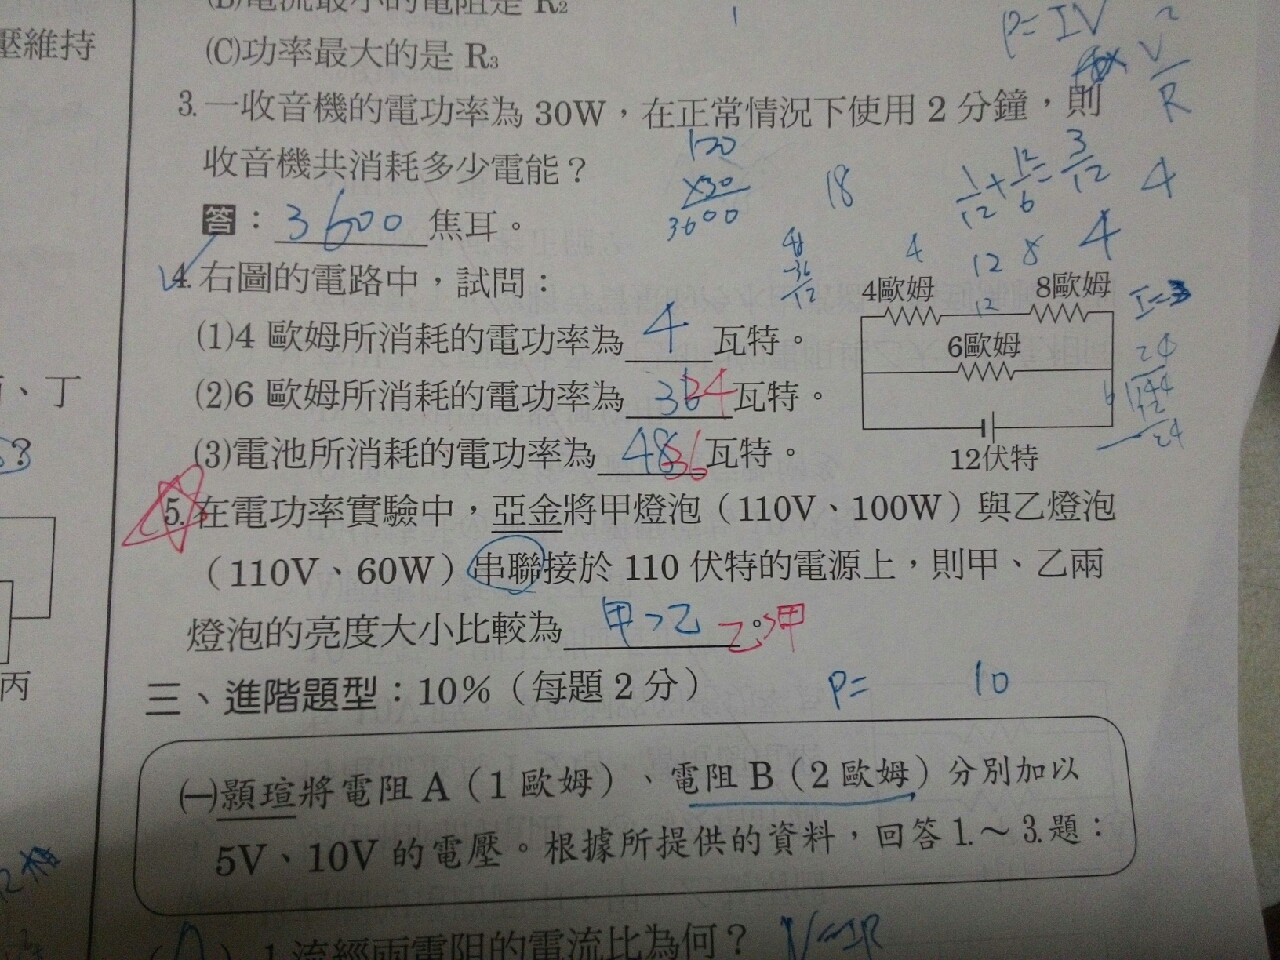 壓維持
(B)電流最小的電阻是 R₂
(C)功率最大的是 R₃
P=IV
V²
R
3. 一收音機的電功率為 30W，在正常情況下使用 2 分鐘，則
收音機共消耗多少電能？
120
×30
3600
18
1/12+12/6=3/12
4
答：3600 焦耳。
48
-36
12
4
12 8
4
4. 右圖的電路中，試問：
4歐姆
12
8歐姆
I=3
(1)4 歐姆所消耗的電功率為 4 瓦特。
6歐姆
24
6 144
12
24
(2)6 歐姆所消耗的電功率為 36 24 瓦特。
(3)電池所消耗的電功率為 48 36 瓦特。
12伏特
、丁
5. 在電功率實驗中，亞金將甲燈泡（110V、100W）與乙燈泡
（110V、60W）串聯接於 110 伏特的電源上，則甲、乙兩
燈泡的亮度大小比較為 甲>乙 。乙>甲
丙
三、進階題型：10%（每題 2 分）
P= 10
㈠顥瑄將電阻 A（1 歐姆）、電阻 B（2 歐姆）分別加以
5V、10V 的電壓。根據所提供的資料，回答 1.～3.題：
(A) 1.流經兩電阻的電流比為何？ V=IR